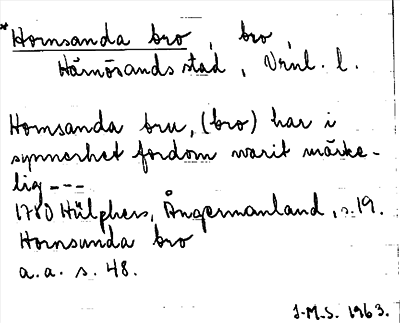 *Hornsanda bro, bro,
Härnösands stad, Vrnl. l.
Hornsanda bru, (bro) har i
synnerhet fordom warit märke-
lig ---
1780 Hülphers, Ångermanland, s. 19.
Hornsunda bro
a.a. s. 48.
J.M.S. 1963.